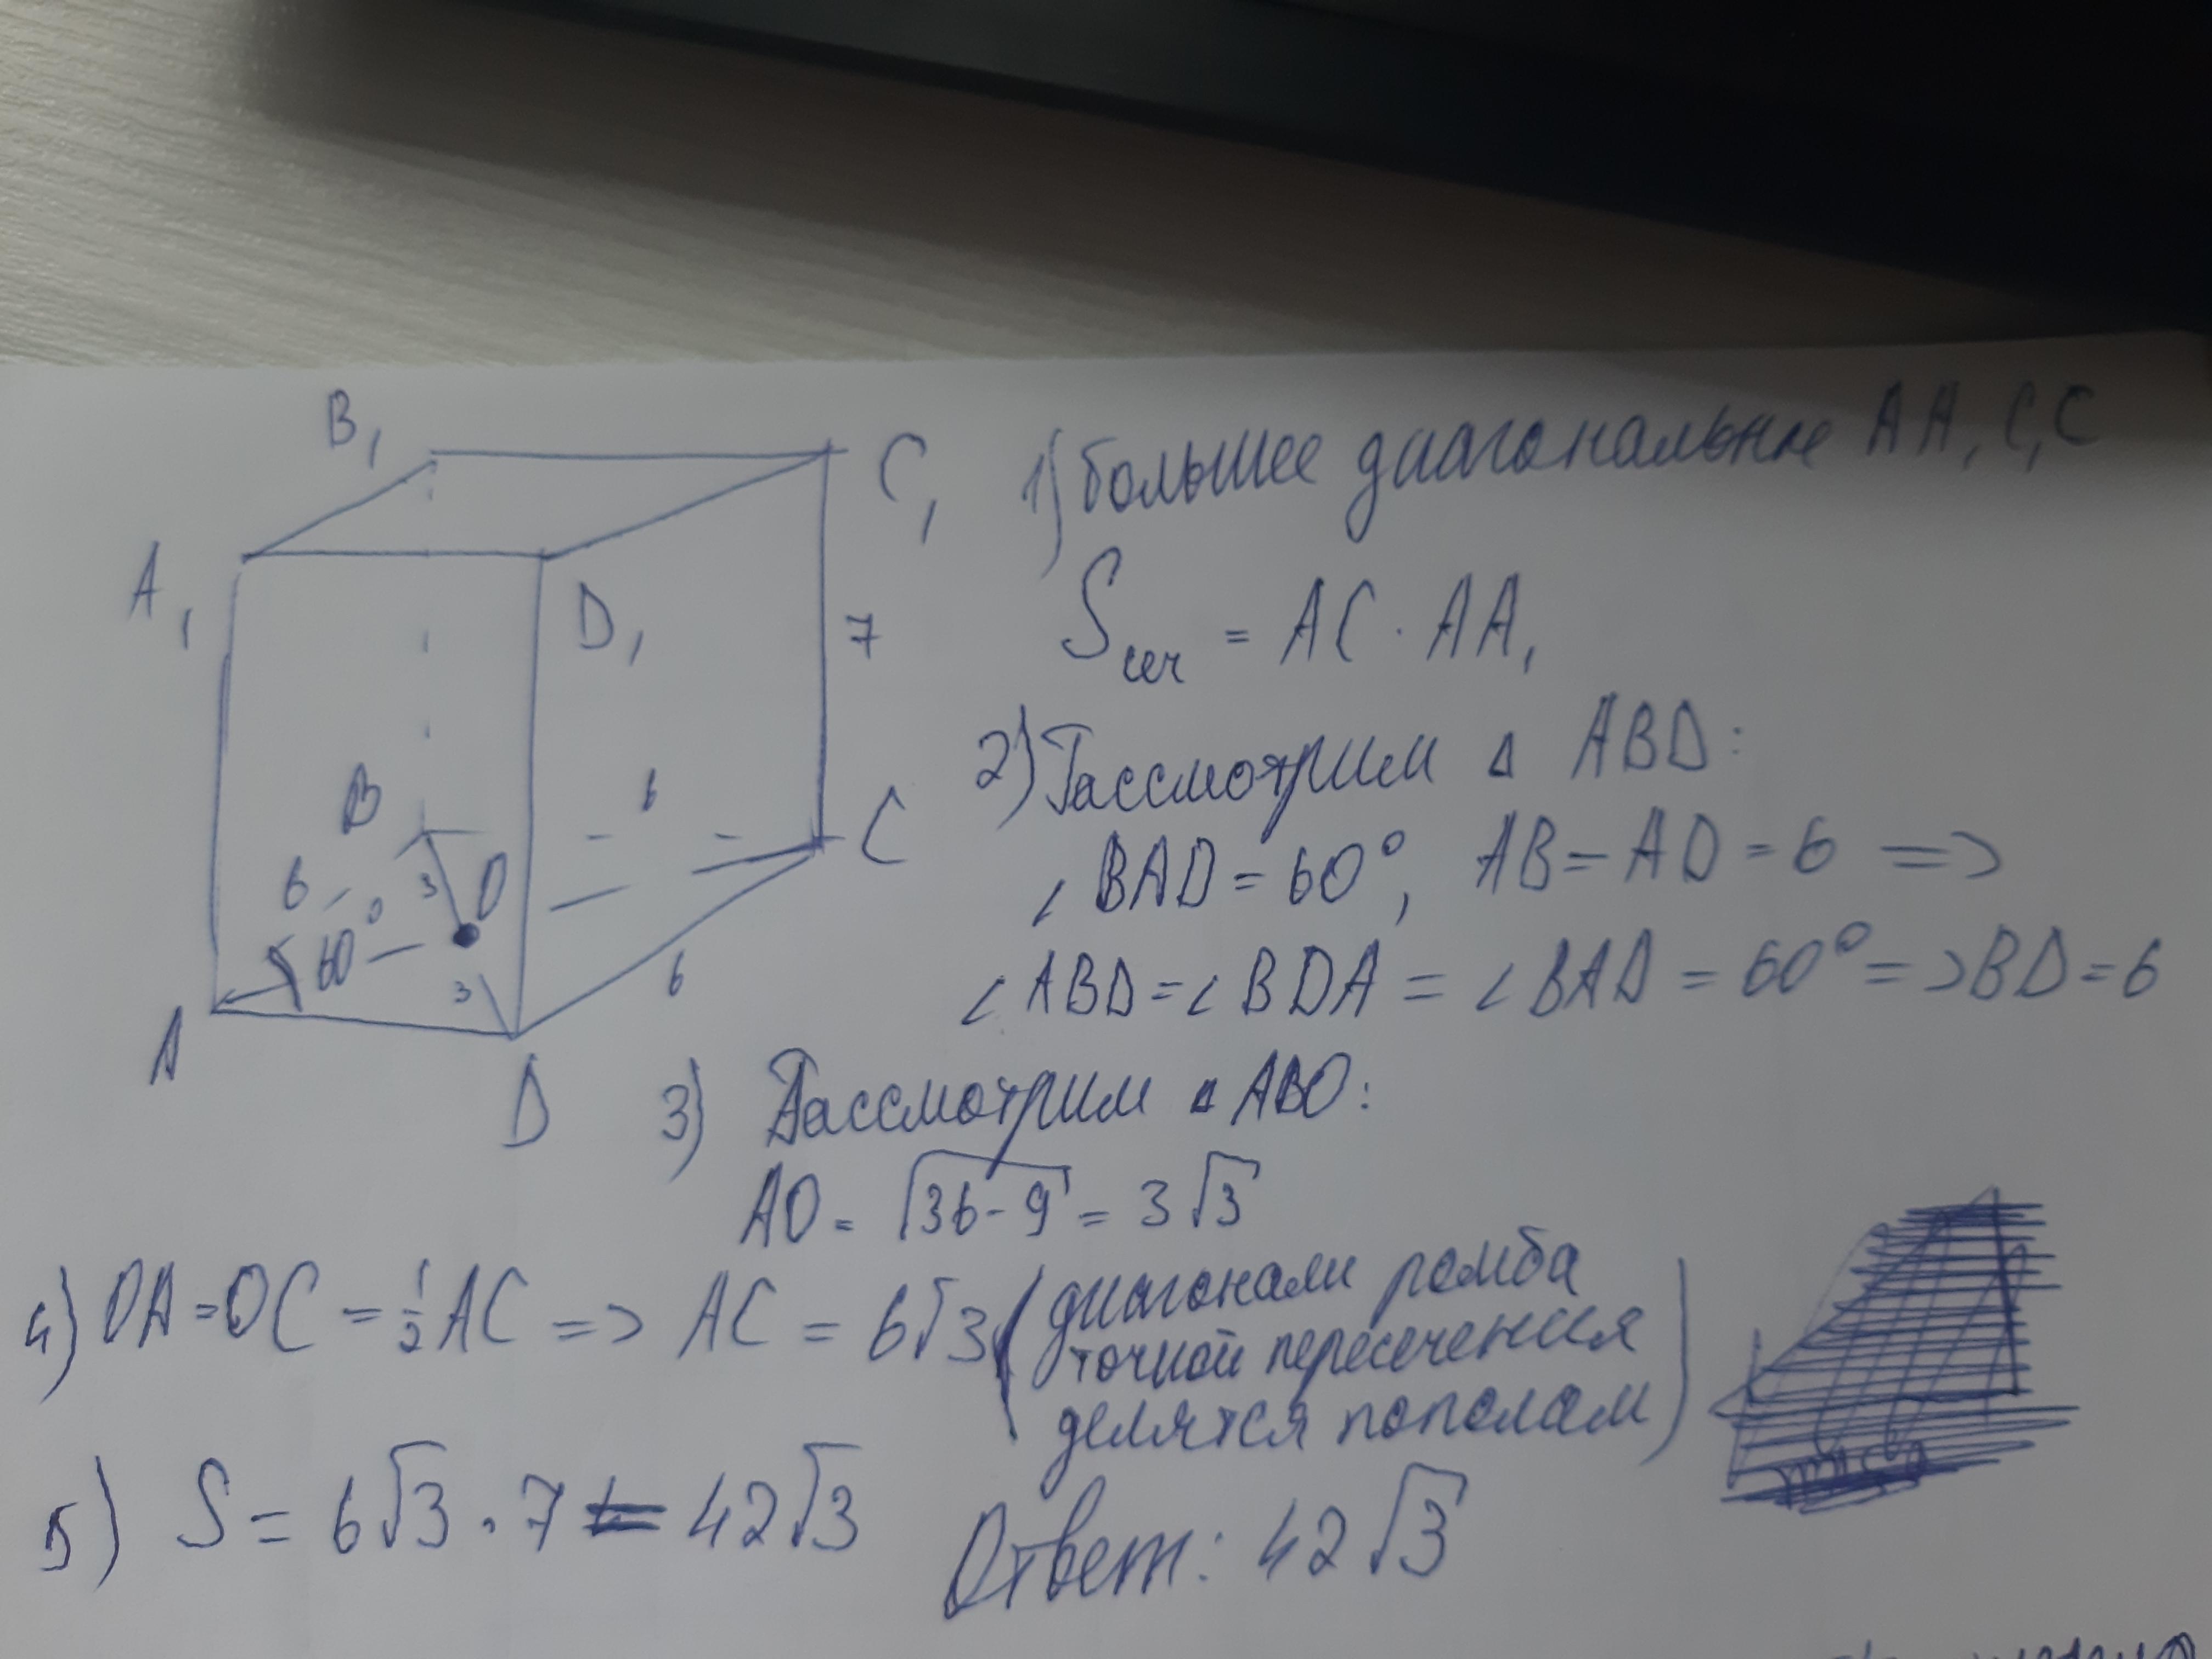 B₁
C₁
A₁
D₁
7
B
6
C
6
3
O
60°
3
6
A
D
1) большее диагональное AA₁C₁C
Sсеч = AC · AA₁
2) Рассмотрим △ ABD:
∠ BAD = 60°, AB = AD = 6 =>
∠ ABD = ∠ BDA = ∠ BAD = 60° => BD = 6
3) Рассмотрим △ ABO:
AO = √36-9 = 3√3
4) OA = OC = ½ AC => AC = 6√3 (диагонали ромба
точкой пересечения
делятся пополам)
5) S = 6√3 · 7 = 42√3
Ответ: 42√3